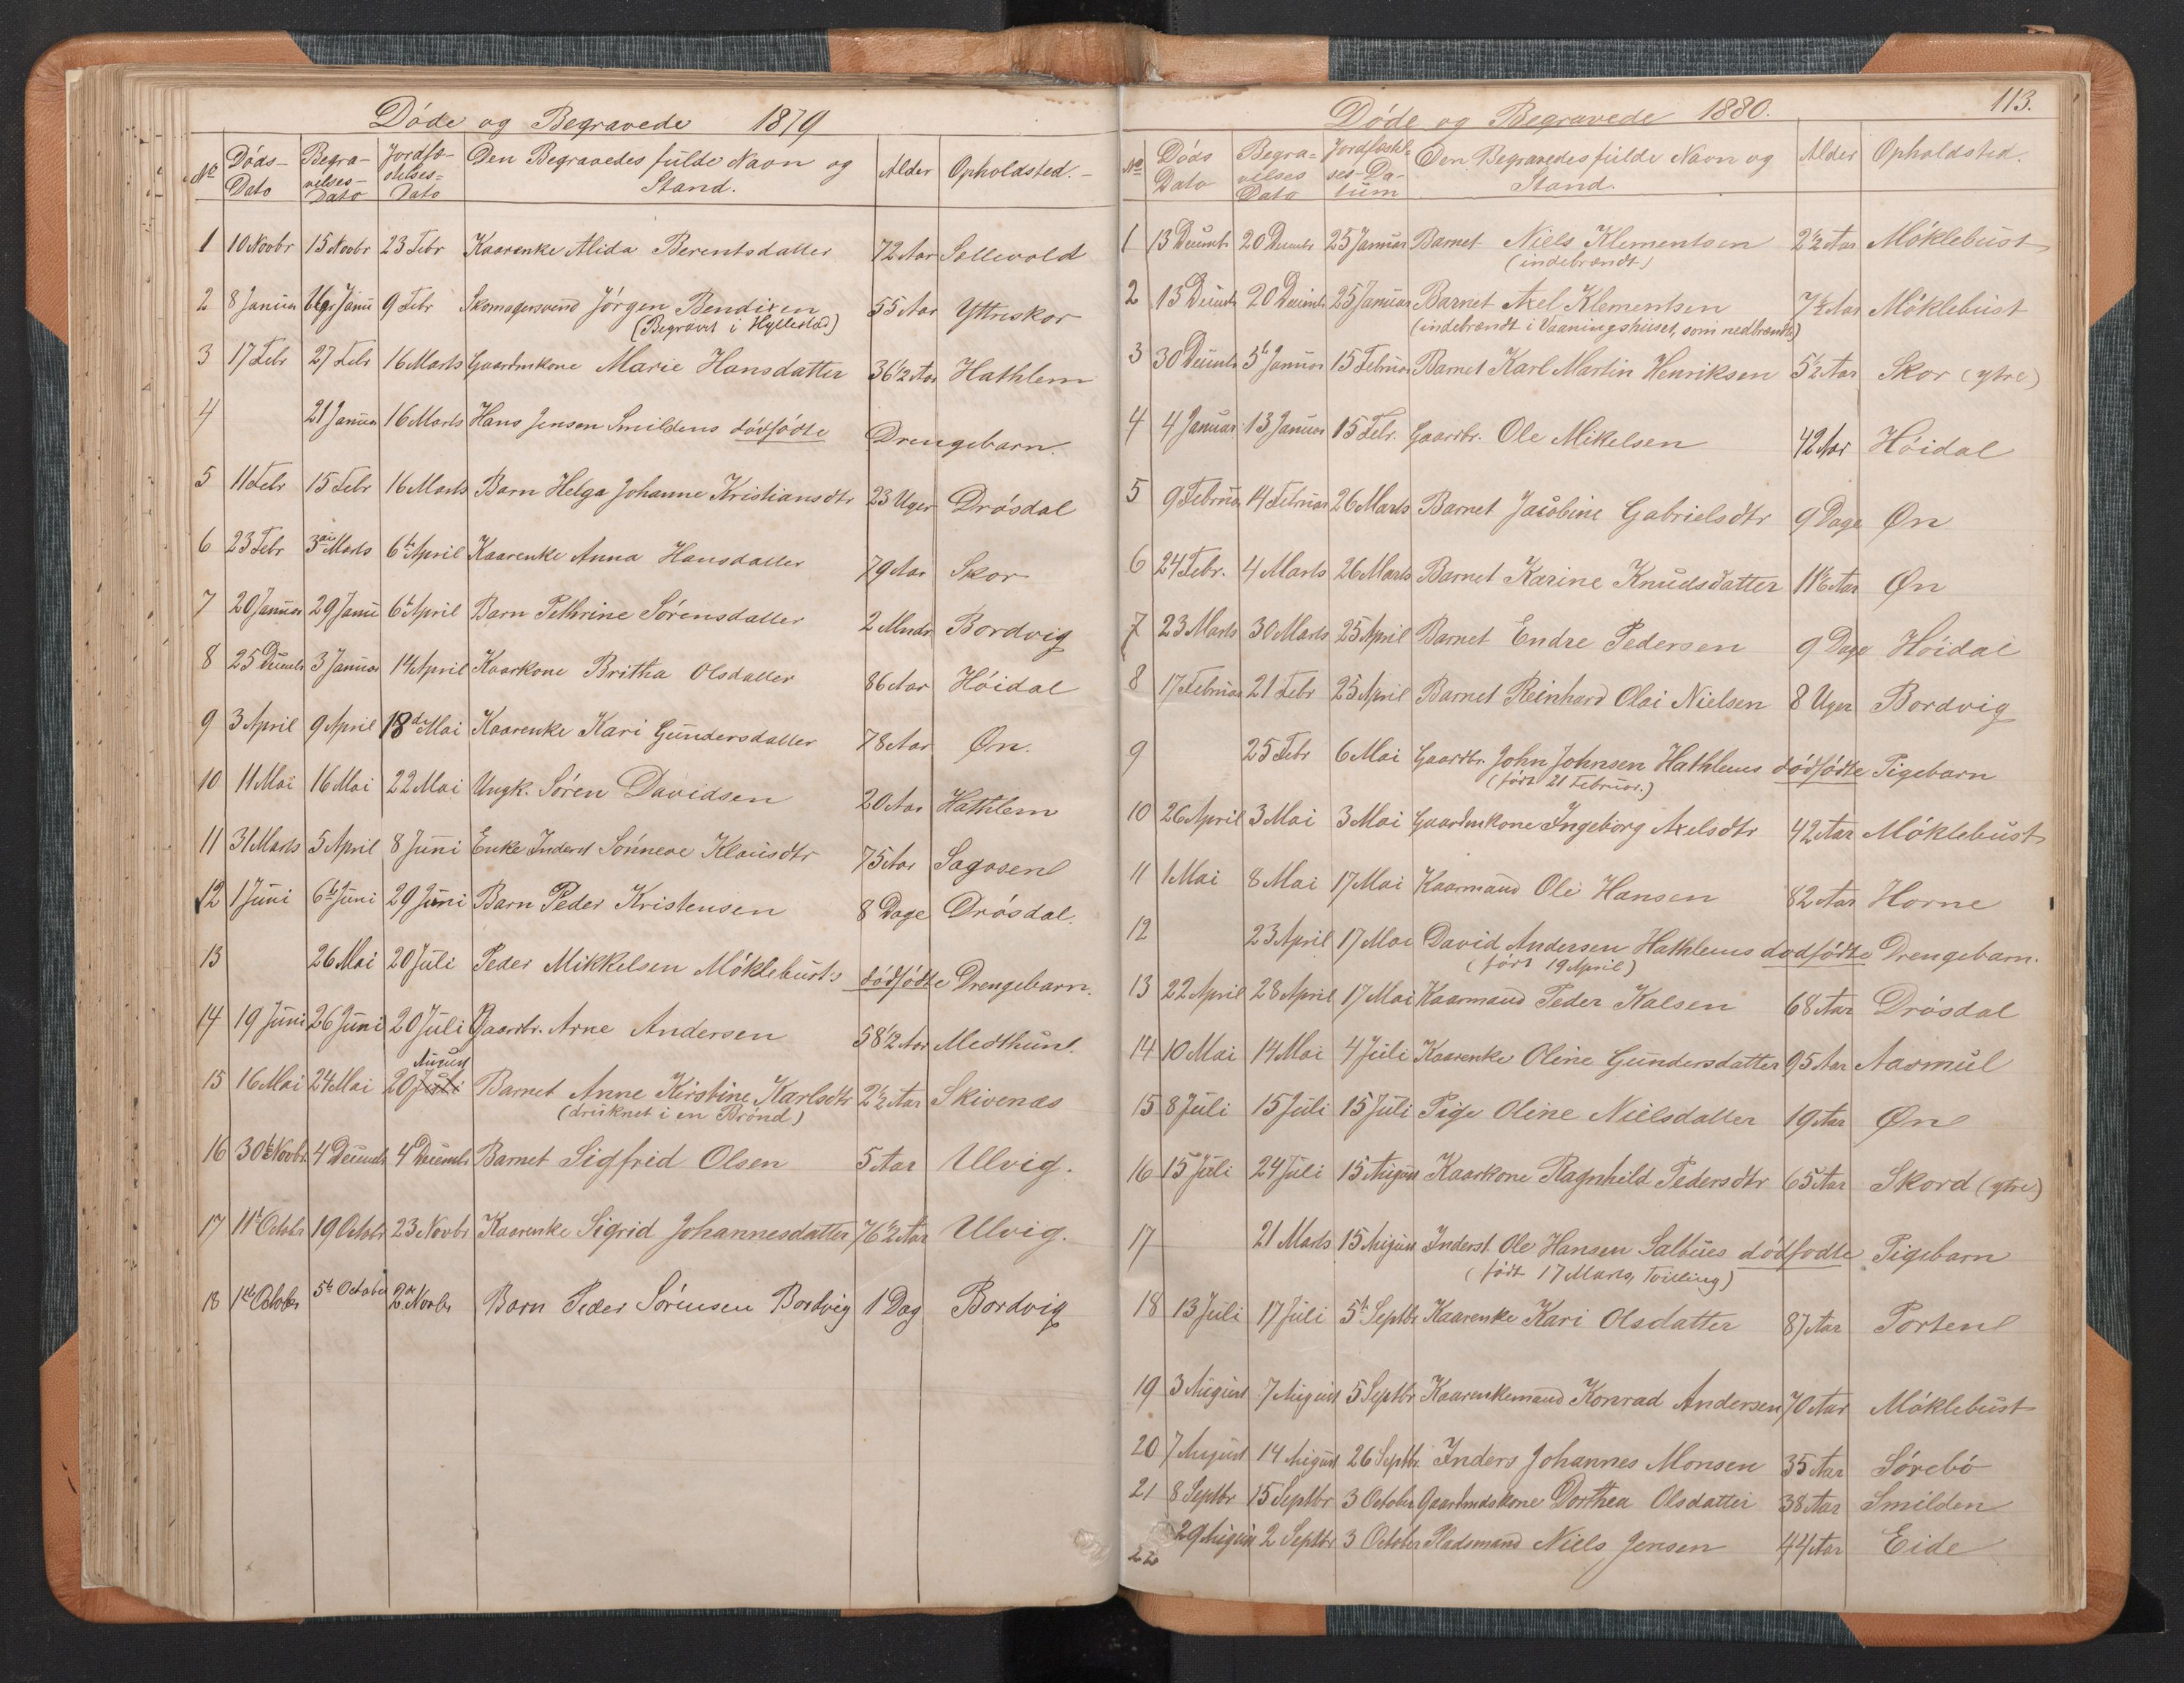 Døde og Begravede 1879
No Døds-Dato Begravelses-Dato Jordfæstelses-Dato Den Begravedes fulde Navn og Stand. Alder Opholdsted.
1 10 Novbr 15 Novbr 23 Febr Kaarenke Alida Berentsdatter 72 Aar Sollevold
2 8 Januar 16 Janu 9 Febr Skomagersvend Jørgen Bendixen 55 Aar Yttreskor
(Begravet i Hyllestad)
3 17 Febr 27 Febr 16 Marts Gaardmkone Marie Hansdatter 36 1/2 Aar Hathlem
4 21 Januar 16 Marts Hans Jensen Smildens dødfødte Drengebarn.
5 11 Febr 15 Febr 16 Marts Barn Helga Johanne Kristiansdtr 23 Uger Drøsdal
6 23 Febr 3die Marts 6te April Kaarenke Anna Hansdatter 79 Aar Skor
7 20 Januar 29 Janu 6te April Barn Pethrine Sørensdatter 2 Mndr Bordvig
8 25 Decemb 3 Januar 14 April Kaarkone Britha Olsdatter 86 Aar Høidal
9 3 April 9 April 18de Mai Kaarenke Kari Gundersdatter 78 Aar Øn.
10 11 Mai 16 Mai 22 Mai Ungk. Søren Davidsen 20 Aar Hathlem
11 31 Marts 5 April 8 Juni Enke Inderst Sønneve Klausdtr 75 Aar Sagosen
12 1 Juni 6te Juni 29 Juni Barn Peder Kristensen 8 Dage Drøsdal.
13 26 Mai 20 Juli Peder Mikkelsen Møklebusts dødfødte Drengebarn.
14 19 Juni 26 Juni 20 Juli Gaardbr. Arne Andersen 58 1/2 Aar Medthun.
August
15 16 Mai 24 Mai 20 Juli Barnet Anne Kirstine Karlsdtr 2 1/2 Aar Skivenæs
(drüknet i en Brønd)
16 30te Novbr 4 Decemb 4 Decemb Barnet Sigfrid Olsen 5 Aar Ulvig.
17 11te Octobr 19 Octobr 23 Novbr Kaarenke Sigrid Johannesdatter 76 1/2 Aar Ulvig.
18 1ste Octobr 5te October 2den Novbr Barn Peder Sørensen Bordvig 1 Dag Bordvig
Døde og Begravede 1880. 113.
No Døds Dato Begravelses Dato Jordfæstelses-Datum Den Begravedes fulde Navn og Stand. Alder Opholdsted.
1 13 Decemb 20 Decemb 25 Januar Barnet Niels Klementsen 2 1/2 Aar Møklebust
(indebrændt)
2 13 Decemb 20 Decemb 25 Januar Barnet Axel Klementsen 7 1/2 Aar Møklebust
(indebrændt i Vaaningshuset, som nedbrændte)
3 30 Decemb 5te Januar 15 Februar Barnet Karl Martin Henriksen 5 1/2 Aar Skor (ytre)
4 4 Januar 13 Januar 15 Febr. Gaardbr. Ole Mikelsen 42 Aar Høidal
5 9 Februar 14 Februar 26 Marts Barnet Jacobine Gabrielsdtr 9 Dage Øn
6 24 Febr. 4 Marts 26 Marts Barnet Karine Knudsdatter 11 1/2 Aar Øn
7 23 Marts 30 Marts 25 April Barnet Endre Pedersen 9 Dage Høidal
8 17 Februar 21 Febr 25 April Barnet Reinhard Olai Nielsen 8 Uger Bordvig
9 25 Febr 6 Mai Gaardbr. John Johnsen Hathlems dødfødte Pigebarn
(født 21 Februar.)
10 26 April 3 Mai 3 Mai Gaardmkone Ingeborg Axelsdtr 42 Aar Møklebust
11 1 Mai 8 Mai 17 Mai Kaarmand Ole Hansen 82 Aar Horne
12 23 April 17 Mai David Andersen Hathlems dødfødte Drengebarn.
(født 19 April)
13 22 April 28 April 17 Mai Kaarmand Peder Kalsen 68 Aar Drøsdal
14 10 Mai 14 Mai 4 Juli Kaarenke Oline Gundersdatter 95 Aar Aasmul
15 8 Juli 15 Juli 15 Juli Pige Oline Nielsdatter 19 Aar Øn
16 15 Juli 24 Juli 15 August Kaarkone Ragnhild Pedersdtr 65 Aar Skord (ytre)
17 21 Marts 15 August Inderst Ole Hansen Salbues dødfødte Pigebarn
(født 17 Marts, Tvilling)
18 13 Juli 17 Juli 5te Septbr Kaarenke Kari Olsdatter 87 Aar Porten
19 3 August 7 August 5 Septbr Kaarenkemand Konrad Andersen 70 Aar Møklebust
20 7 August 14 August 26 Septbr Inders Johannes Monsen 35 Aar Sørebø
21 8 Septbr 15 Septbr 3 October Gaardmdskone Dorthea Olsdatter 38 Aar Smilden
22 29 August 2 Septbr 3 October Pladsmand Niels Jensen 44 Aar Eide